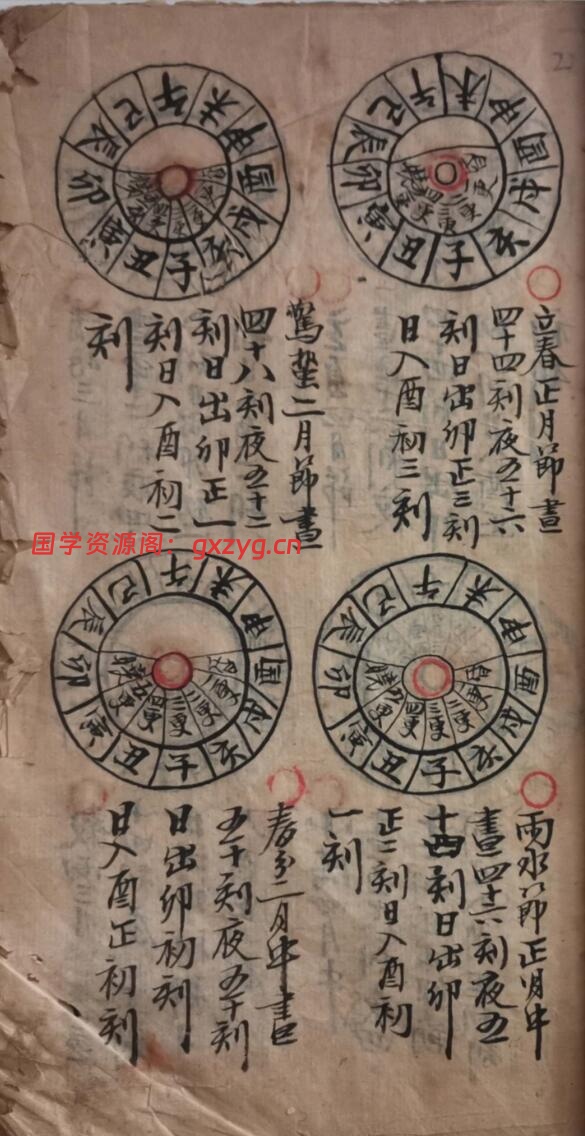 22
午未申酉戌亥子丑寅卯辰巳
昏一更二更三更四更五更曉
立春正月節晝
四十四刻夜五十六
刻日出卯正三刻
日入酉初三刻
午未申酉戌亥子丑寅卯辰巳
驚蟄二月節晝
四十八刻夜五十二
刻日出卯正一
刻日入酉初二
刻
国学资源阁：gxzyg.cn
午未申酉戌亥子丑寅卯辰巳
昏一更二更三更四更五更曉
雨水節正月中
晝四十六刻夜五
十四刻日出卯
正二刻日入酉初
一刻
午未申酉戌亥子丑寅卯辰巳
昏一更二更三更四更五更曉
春分二月中晝
五十刻夜五十刻
日出卯初刻
日入酉正初刻